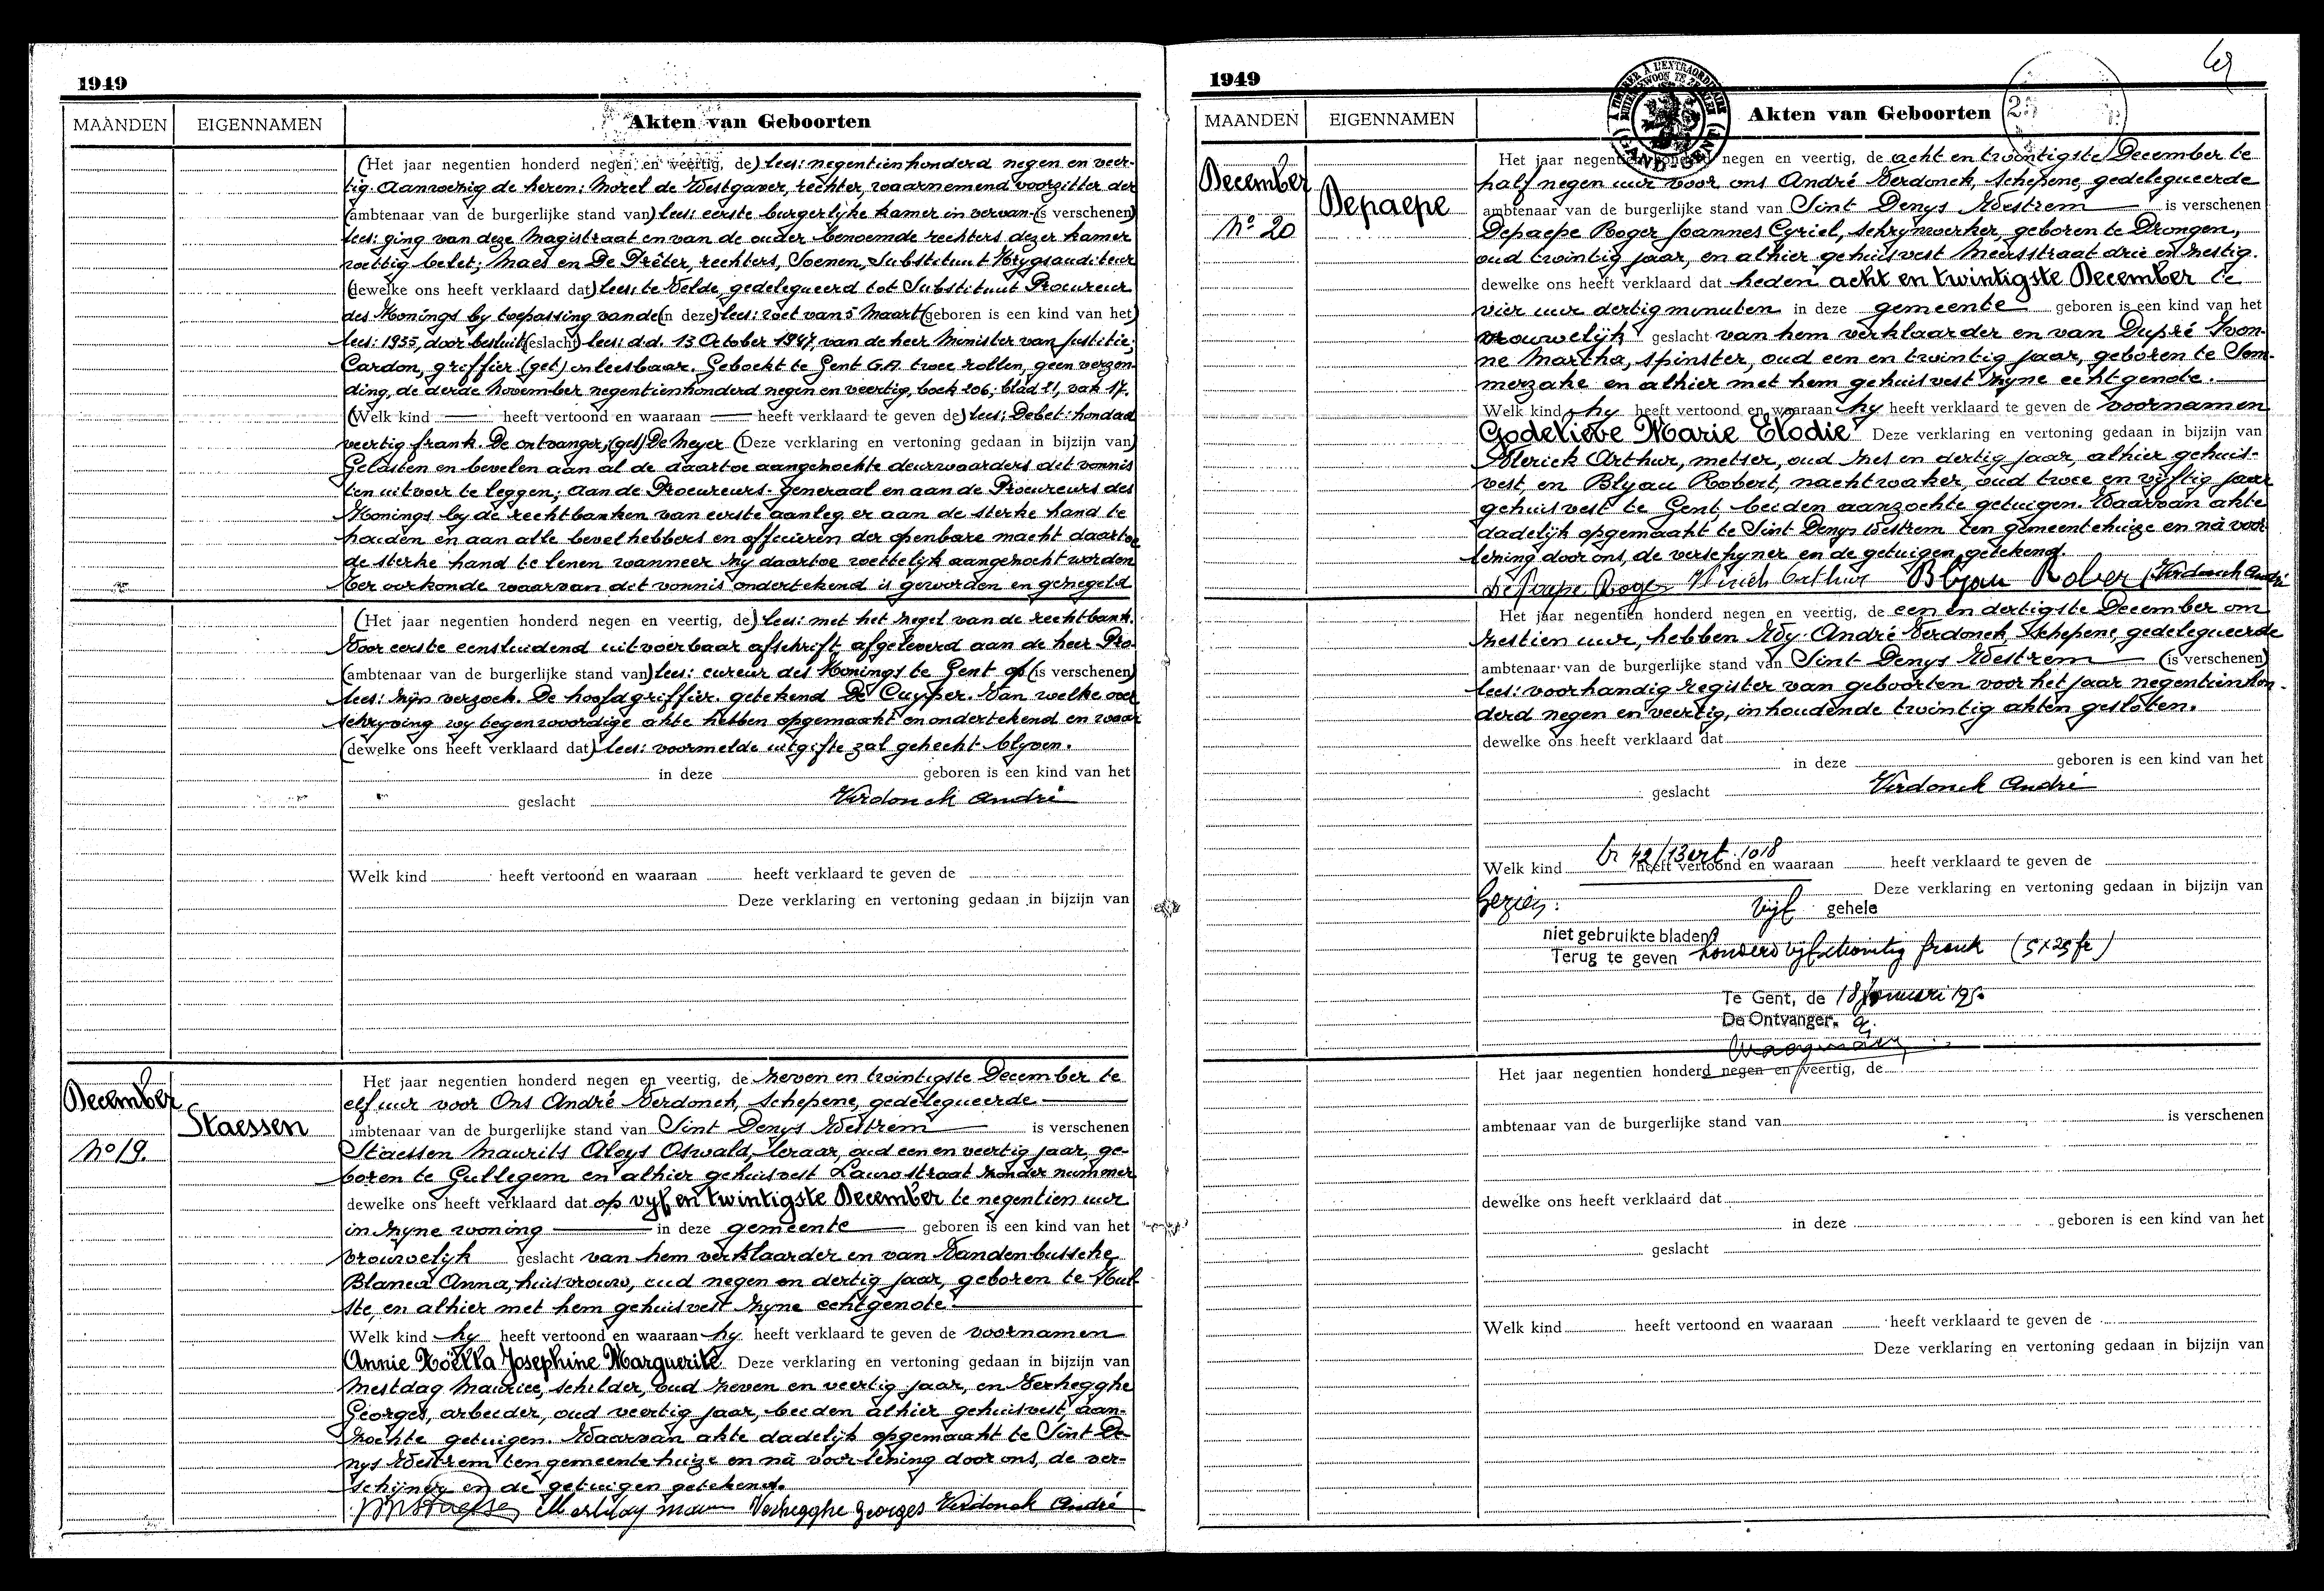 1949
MAANDEN EIGENNAMEN Akten van Geboorten
(Het jaar negentien honderd negen en veertig, de) lees: negentienhonderd negen en veer-
tig. Aanwezig de heren: Morel de Westgaver, rechter, waarnemend voorzitter der
(ambtenaar van de burgerlijke stand van) lees: eerste burgerlijke kamer in vervan- (is verschenen)
lees: ging van deze Magistraat en van de ouder benoemde rechters dezer kamer
wettig belet; Maes en De Prêter, rechters, Soenen, Substituut Krygsauditeur
(dewelke ons heeft verklaard dat) lees: te Velde, gedelegueerd tot Substituut Procureur
des Konings by toepassing van de (in deze) lees: wet van 5 Maart (geboren is een kind van het)
lees: 1935, door besluit (geslacht) lees: d.d. 13 October 1947, van de heer Minister van Justitie;
Cardon, griffier (get) onleesbaar. Geboekt te Gent G.A. twee rollen, geen verzen-
ding, de derde November negentienhonderd negen en veertig, boek 206, blad 21, vak 17.
(Welk kind heeft vertoond en waaraan heeft verklaard te geven de) lees: Debet: honderd
veertig frank. De ontvanger, (get) De Meyer (Deze verklaring en vertoning gedaan in bijzijn van)
Gelasten en bevelen aan al de daartoe aangezochte deurwaarders dit vonnis
ten uitvoer te leggen; aan de Procureurs-Generaal en aan de Procureurs des
Konings by de rechtbanken van eerste aanleg er aan de sterke hand te
houden en aan alle bevelhebbers en officieren der openbare macht daartoe
de sterke hand te lenen wanneer zy daartoe wettelyk aangezocht worden
Ter oorkonde waarvan dit vonnis ondertekend is geworden en gezegeld
(Het jaar negentien honderd negen en veertig, de) lees: met het zegel van de rechtbank.
Voor eerste eensluidend uitvoerbaar afschrift afgeleverd aan de heer Pro-
(ambtenaar van de burgerlijke stand van) lees: cureur des Konings te Gent op (is verschenen)
lees: zijn verzoek. De hoofdgriffier. getekend De Cuyper. Van welke over
schryving wy tegenwoordige akte hebben opgemaakt en ondertekend en waar
(dewelke ons heeft verklaard dat) lees: voormelde uitgifte zal gehecht blyven.
in deze geboren is een kind van het
geslacht Verdonck André
Welk kind heeft vertoond en waaraan heeft verklaard te geven de
Deze verklaring en vertoning gedaan in bijzijn van
December
Staessen
No 19.
Het jaar negentien honderd negen en veertig, de zeven en twintigste December te
elf uur voor Ons André Verdonck, Schepene, gedelegueerde
ambtenaar van de burgerlijke stand van Sint Denys Westrem is verschenen
Staessen Maurits Aloys Oswald, leraar, oud een en veertig jaar, ge-
boren te Gullegem en alhier gehuisvest Lauwstraat zonder nummer
dewelke ons heeft verklaard dat op vyf en twintigste December te negentien uur
in zyne woning in deze gemeente geboren is een kind van het
vrouwelijk geslacht van hem verklaarder en van Vandenbussche
Blanca Anna, huisvrouw, oud negen en dertig jaar, geboren te Hul-
ste, en alhier met hem gehuisvest zyne echtgenote.
Welk kind hy heeft vertoond en waaraan hy heeft verklaard te geven de voornamen
Annie Noëlla Josephine Marguerite Deze verklaring en vertoning gedaan in bijzijn van
Mestdag Maurice, schilder, oud zeven en veertig jaar, en Verhegghe
Georges, arbeider, oud veertig jaar, beiden alhier gehuisvest, aan-
zochte getuigen. Waarvan akte dadelijk opgemaakt te Sint De-
nys Westrem ten gemeentehuize en nà voorlezing door ons, de ver-
schijner en de getuigen getekend.
Verhegghe Georges Verdonck André
1949
MAANDEN EIGENNAMEN Akten van Geboorten
December
Depaepe
No 20
Het jaar negentien honderd negen en veertig, de acht en twintigste December te
half negen uur voor ons André Verdonck, Schepene, gedelegueerde
ambtenaar van de burgerlijke stand van Sint Denys Westrem is verschenen
Depaepe Roger Joannes Cyriel, schrynwerker, geboren te Drongen,
oud twintig jaar, en alhier gehuisvest Meersstraat drie en zestig.
dewelke ons heeft verklaard dat heden acht en twintigste December te
vier uur dertig minuten in deze gemeente geboren is een kind van het
vrouwelijk geslacht van hem verklaarder en van Dupré Yvon-
ne Martha, spinster, oud een en twintig jaar, geboren te Som-
merzake en alhier met hem gehuisvest zyne echtgenote.
Welk kind hy heeft vertoond en waaraan hy heeft verklaard te geven de voornamen
Godelieve Marie Elodie Deze verklaring en vertoning gedaan in bijzijn van
Arthur, metser, oud zes en dertig jaar, alhier gehuis-
vest, en Blyau Robert, nachtwaker, oud twee en vyftig jaar
gehuisvest te Gent, beiden aanzochte getuigen. Waarvan akte
dadelijk opgemaakt te Sint Denys Westrem ten gemeentehuize en nà voor
lezing door ons, de verschyner en de getuigen getekend.
De Paepe Roger Arthur Blyau Rober Verdonck André
Het jaar negentien honderd negen en veertig, de een en dertigste December om
zestien uur, hebben Wy André Verdonck, Schepene, gedelegueerde
ambtenaar van de burgerlijke stand van Sint Denys Westrem (is verschenen)
lees: voorhandig register van geboorten voor het jaar negentienhon-
derd negen en veertig, inhoudende twintig akten gesloten.
dewelke ons heeft verklaard dat
in deze geboren is een kind van het
geslacht Verdonck André
42/13 1018
Welk kind heeft vertoond en waaraan heeft verklaard te geven de
Deze verklaring en vertoning gedaan in bijzijn van
Gezien: vijf gehele
niet gebruikte bladen
Terug te geven honderd vijfentwintig frank (5x25 fr)
Te Gent, de 18 Januari 1950
De Ontvanger.
Het jaar negentien honderd negen en veertig, de
ambtenaar van de burgerlijke stand van is verschenen
dewelke ons heeft verklaard dat
in deze geboren is een kind van het
geslacht
Welk kind heeft vertoond en waaraan heeft verklaard te geven de
Deze verklaring en vertoning gedaan in bijzijn van